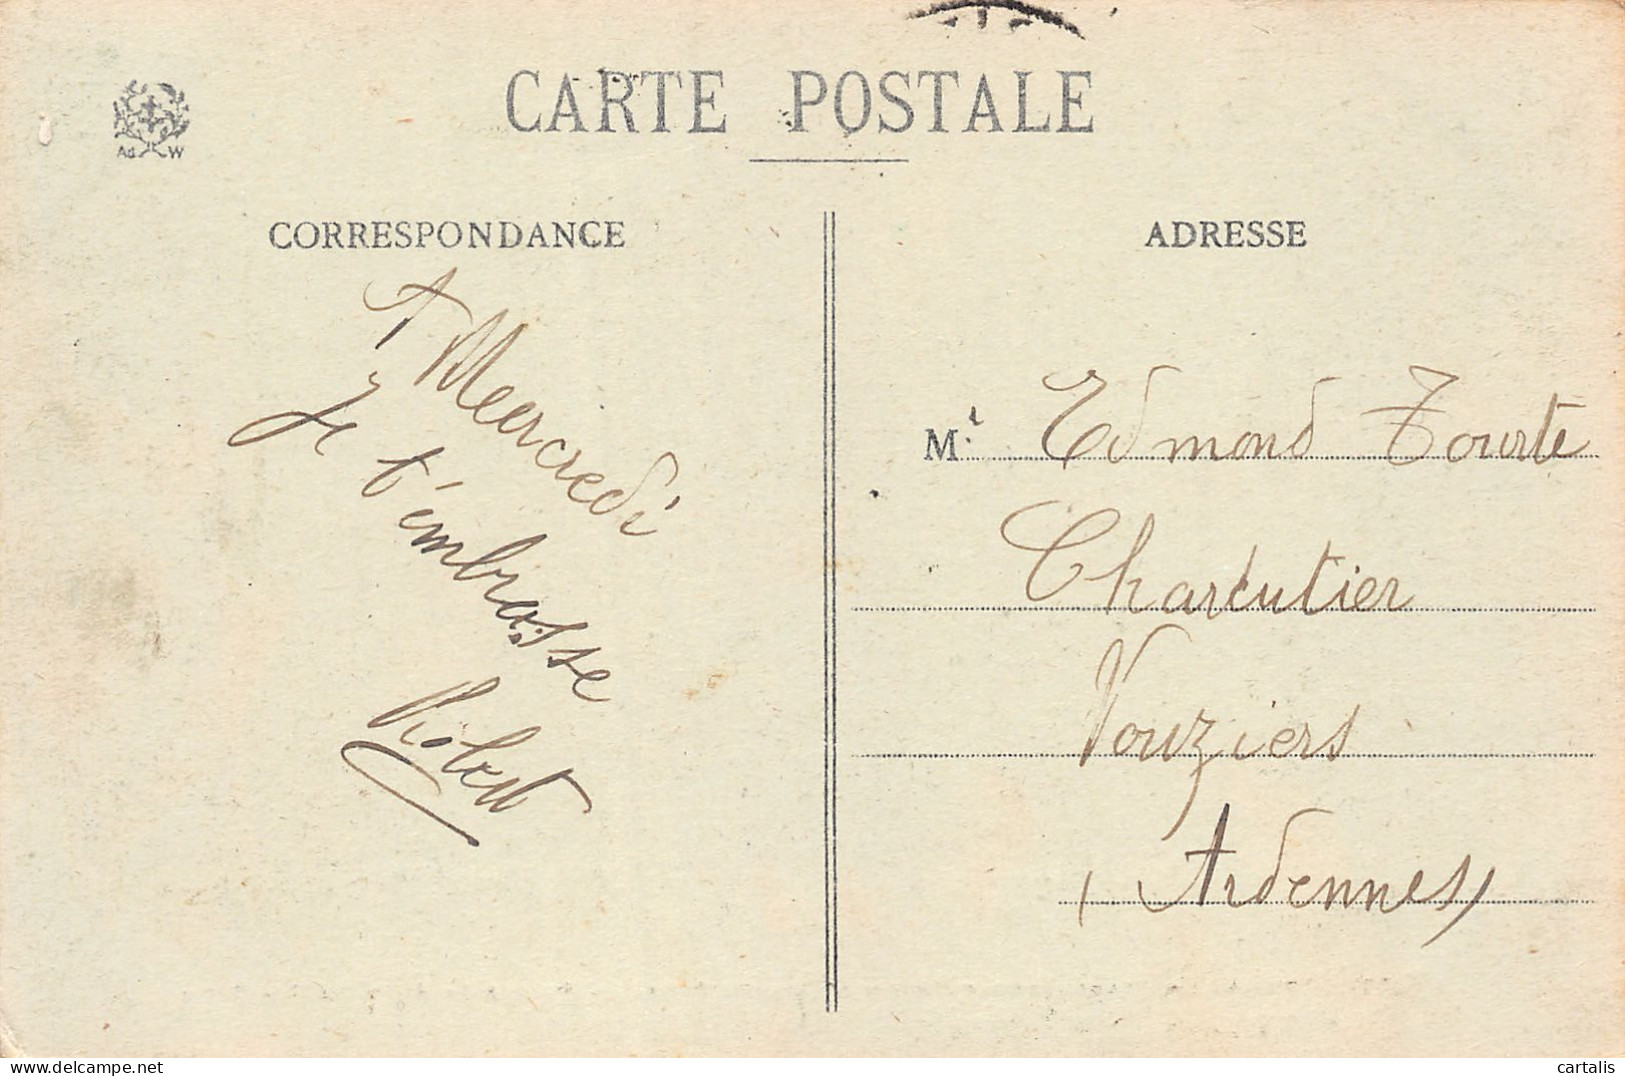 CARTE POSTALE
Ad W
CORRESPONDANCE
ADRESSE
A Mercredi
Je t'émbrasse
Robert
Mr Edmond Tourte
Charcutier
Vouziers
(Ardennes)
delcampe.net
cartalis